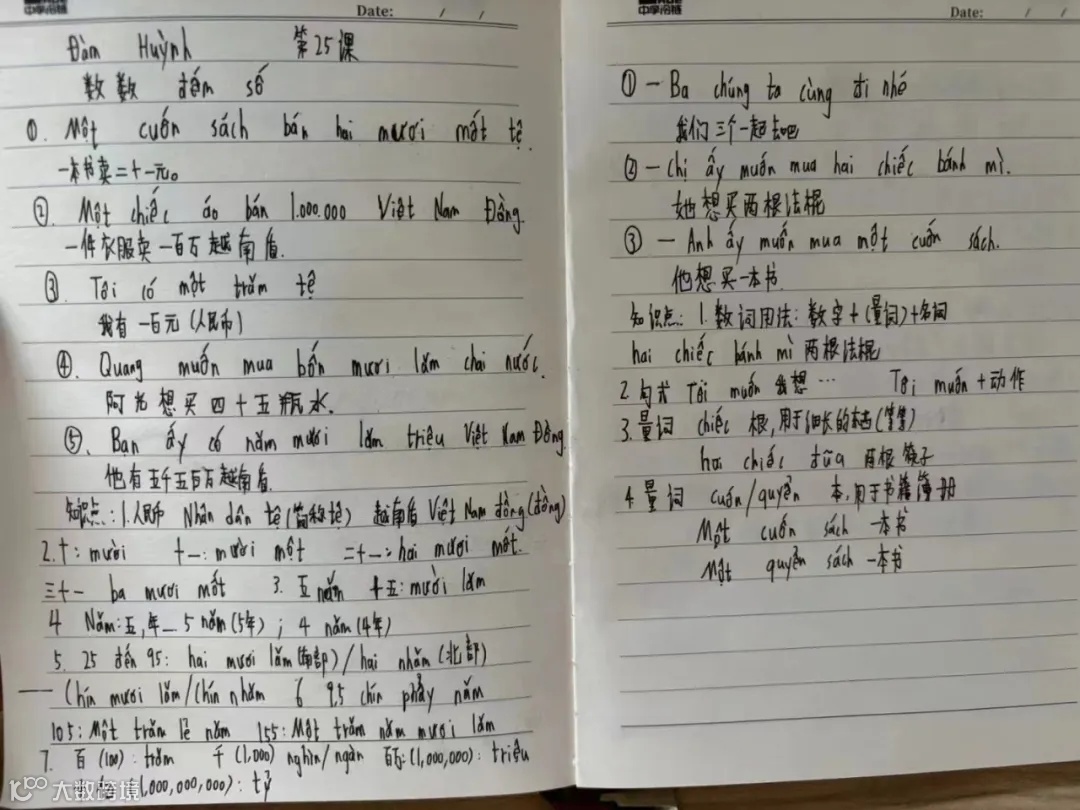 Date: / /
Đàm Huỳnh 第25课
数数 đếm số
①. Một cuốn sách bán hai mươi mốt tệ.
一本书卖二十一元。
②. Một chiếc áo bán 1.000.000 Việt Nam Đồng.
一件衣服卖一百万越南盾.
③. Tôi có một trăm tệ
我有一百元(人民币)
④. Quang muốn mua bốn mươi lăm chai nước.
阿光想买四十五瓶水.
⑤. Bạn ấy có năm mươi lăm triệu Việt Nam Đồng.
他有五千五百万越南盾.
知识点:1.人民币 Nhân dân tệ(简称tệ) 越南盾 Việt Nam đồng(đồng)
2.十:mười 十一:mười một 二十一:hai mươi mốt.
三十一 ba mươi mốt 3. 五 năm 十五:mười lăm
4 Năm:五,年_5 năm(5年); 4 năm(4年)
5. 25 đến 95: hai mươi lăm(南部)/hai nhăm(北部)
Chín mươi lăm/Chín nhăm 6 9,5 chín phẩy năm
105:Một trăm lẻ năm 155:Một trăm năm mươi lăm
7. 百(100):trăm 千(1,000) nghìn/ngàn 百万:(1,000,000):triệu
(1,000,000,000):tỷ
大数跨境
Date: / /
① — Ba chúng ta cùng đi nhé
我们三个一起去吧
② — Chị ấy muốn mua hai chiếc bánh mì.
她想买两根法棍
③ — Anh ấy muốn mua một cuốn sách.
他想买一本书.
知识点:1.数词用法:数字+(量词)+名词
hai chiếc bánh mì 两根法棍
2.句式 Tôi muốn 我想… Tôi muốn+动作
3.量词 chiếc 根,用于细长的东西(等等)
hai chiếc đũa 两根筷子
4.量词 cuốn/quyển 本,用于书籍簿册
Một cuốn sách 一本书
Một quyển sách 一本书